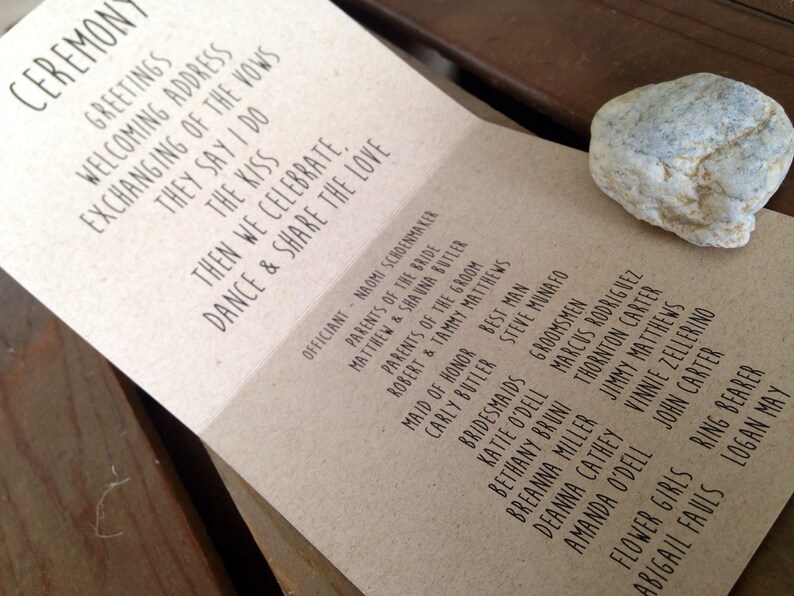 CEREMONY
GREETINGS
WELCOMING ADDRESS
EXCHANGING OF THE VOWS
THEY SAY I DO
THE KISS
THEN WE CELEBRATE,
DANCE & SHARE THE LOVE
OFFICIANT - NAOMI SCHOENMAKER
PARENTS OF THE BRIDE
MATTHEW & SHAUNA BUTLER
PARENTS OF THE GROOM
ROBERT & TAMMY MATTHEWS
MAID OF HONOR
CARLY BUTLER
BEST MAN
STEVE MUNAFO
BRIDESMAIDS
KATIE O'DELL
BETHANY BRINI
BREANNA MILLER
DEANNA CATHEY
AMANDA O'DELL
GROOMSMEN
MARCUS RODRIGUEZ
THORNTON CARTER
JIMMY MATTHEWS
VINNIE ZELLERINO
JOHN CARTER
FLOWER GIRLS
ABIGAIL FAULS
RING BEARER
LOGAN MAY